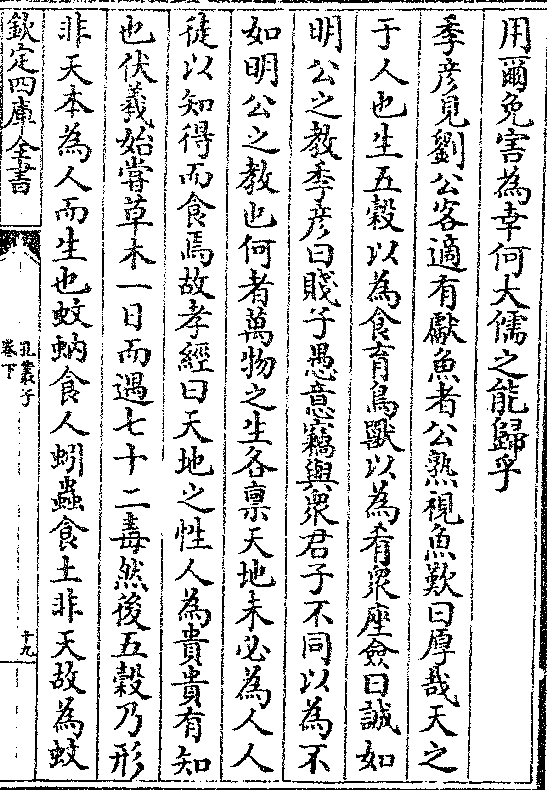 用爾免害為幸何大儒之能歸乎
季彦見劉公客適有獻魚者公熟視魚歎曰厚哉天之
于人也生五穀以為食育鳥獸以為肴衆座僉曰誠如
明公之教季彦曰賤子愚意竊與衆君子不同以為不
如明公之教也何者萬物之生各稟天地未必為人人
徒以知得而食焉故孝經曰天地之性人為貴貴有知
也伏羲始嘗草木一日而遇七十二毒然後五穀乃形
非天本為人而生也蚊蚋食人蚓蟲食土非天故為蚊
欽定四庫全書
孔叢子
卷下
十九